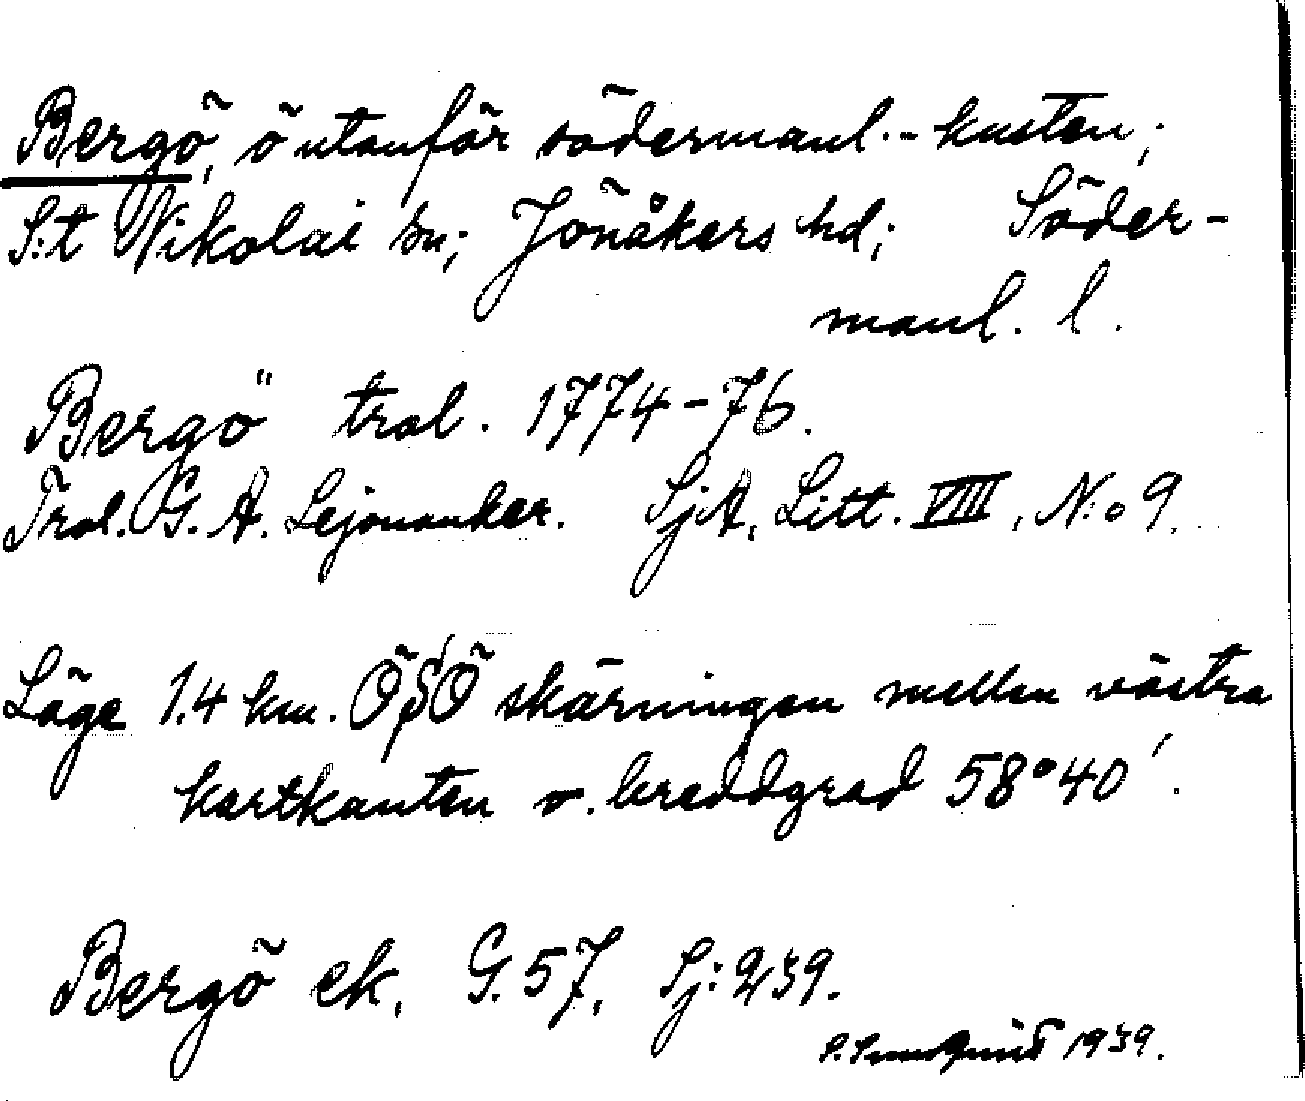 Bergö, ö utanför södermanl.-kusten;
S:t Nikolai sn; Jönåkers hd; Söder-
manl. l.
Bergö" trol. 1774-76.
Trol. G. A. Lejonanker. SjA, Litt. VIII, N:o 9.
Läge 1.4 km. ÖSÖ skärningen mellan västra
kartkanten o. breddgrad 58°40'.
Bergö ek. G. 57, Sj: 239.
1939.